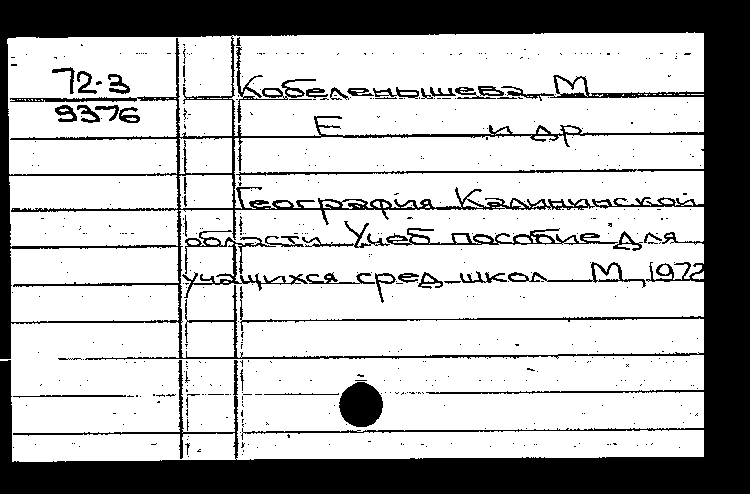 72-3
9376
Кобеленышева, М
Е и др
География Калининской
области Учеб пособие для
учащихся сред школ М, 1972